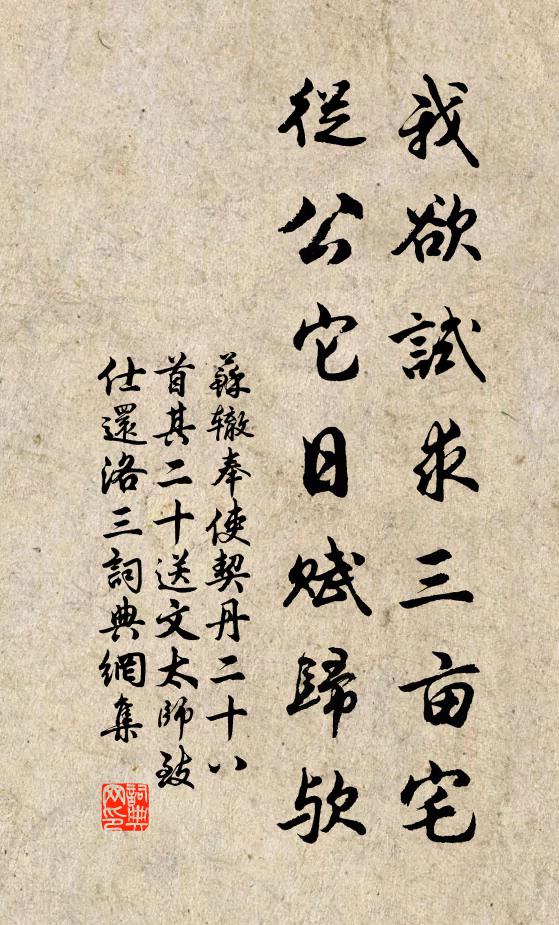 我欲試求三亩宅
從公它日赋歸欤
蘇辙奉使契丹二十八
首其二十送文太師致
仕還洛三詞典網集
詞典网印